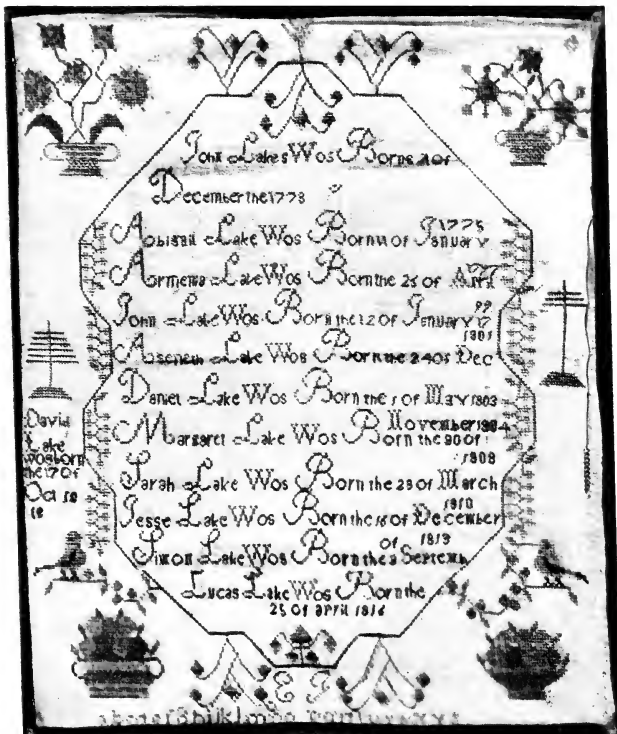 John Lakes Wos Born
December the 1773
1775
Abigail Lake Wos Born of January
Armenia Lake Wos Born the 25 of
John Lake Wos Born the 12 of January 17
99
1801
Aseneth Lake Wos Born the 24 of Dec
Daniel Lake Wos Born the 1 of May 1803
November 1804
Margaret Lake Wos Born the 30 of
1808
Sarah Lake Wos Born the 29 of March
1810
Jesse Lake Wos Born the 16 of December
of 1813
Simon Lake Wos Born the Septemb
Lucas Lake Wos Born the
25 of april 1816
David
Lake
wosborn
the 17 of
Oct
E